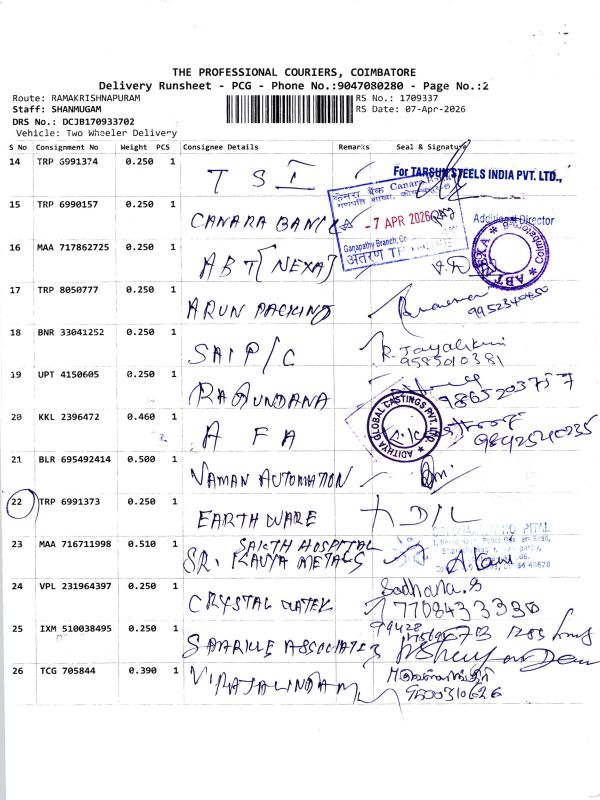 THE PROFESSIONAL COURIERS, COIMBATORE
Delivery Runsheet - PCG - Phone No.:9047080280 - Page No.:2
Route: RAMAKRISHNAPURAM
RS No.: 1709337
Staff: SHANMUGAM
RS Date: 07-Apr-2026
DRS No.: DCJB170933702
Vehicle: Two Wheeler Delivery
S No Consignment No Weight PCS Consignee Details Remarks Seal & Signature
14 TRP G991374 0.250 1 TSI For TARSUN STEELS INDIA PVT. LTD.,
15 TRP 6990157 0.250 1 CANARA BANK
केनरा बैंक Canara
-7 APR 2026
Ganapathy Branch,
अंतरण
Additional Director
16 MAA 717862725 0.250 1 ABT [NEXA]
ABT NEXA * Coimbatore
17 TRP 8050777 0.250 1 ARUN PACKING
9952340450
18 BNR 33041252 0.250 1 SAI P/C
R. Jayalakmi
9585010381
19 UPT 4150605 0.250 1 RAGUNDANA
9865203757
20 KKL 2396472 0.460 1 A F A
ADITHYA GLOBAL CASTINGS PVT. LTD.
9842540235
21 BLR 695492414 0.500 1 NAMAN AUTOMATION
22 TRP 6991373 0.250 1 EARTH WARE
23 MAA 716711998 0.510 1 SAKTH HOSPITAL
SRI. KAVYA METALS
24 VPL 231964397 0.250 1 CRYSTAL WATER
Sadhana.S
7708433330
25 IXM 510038495 0.250 1 ASSOCIATES
26 TCG 705844 0.390 1
9500310626